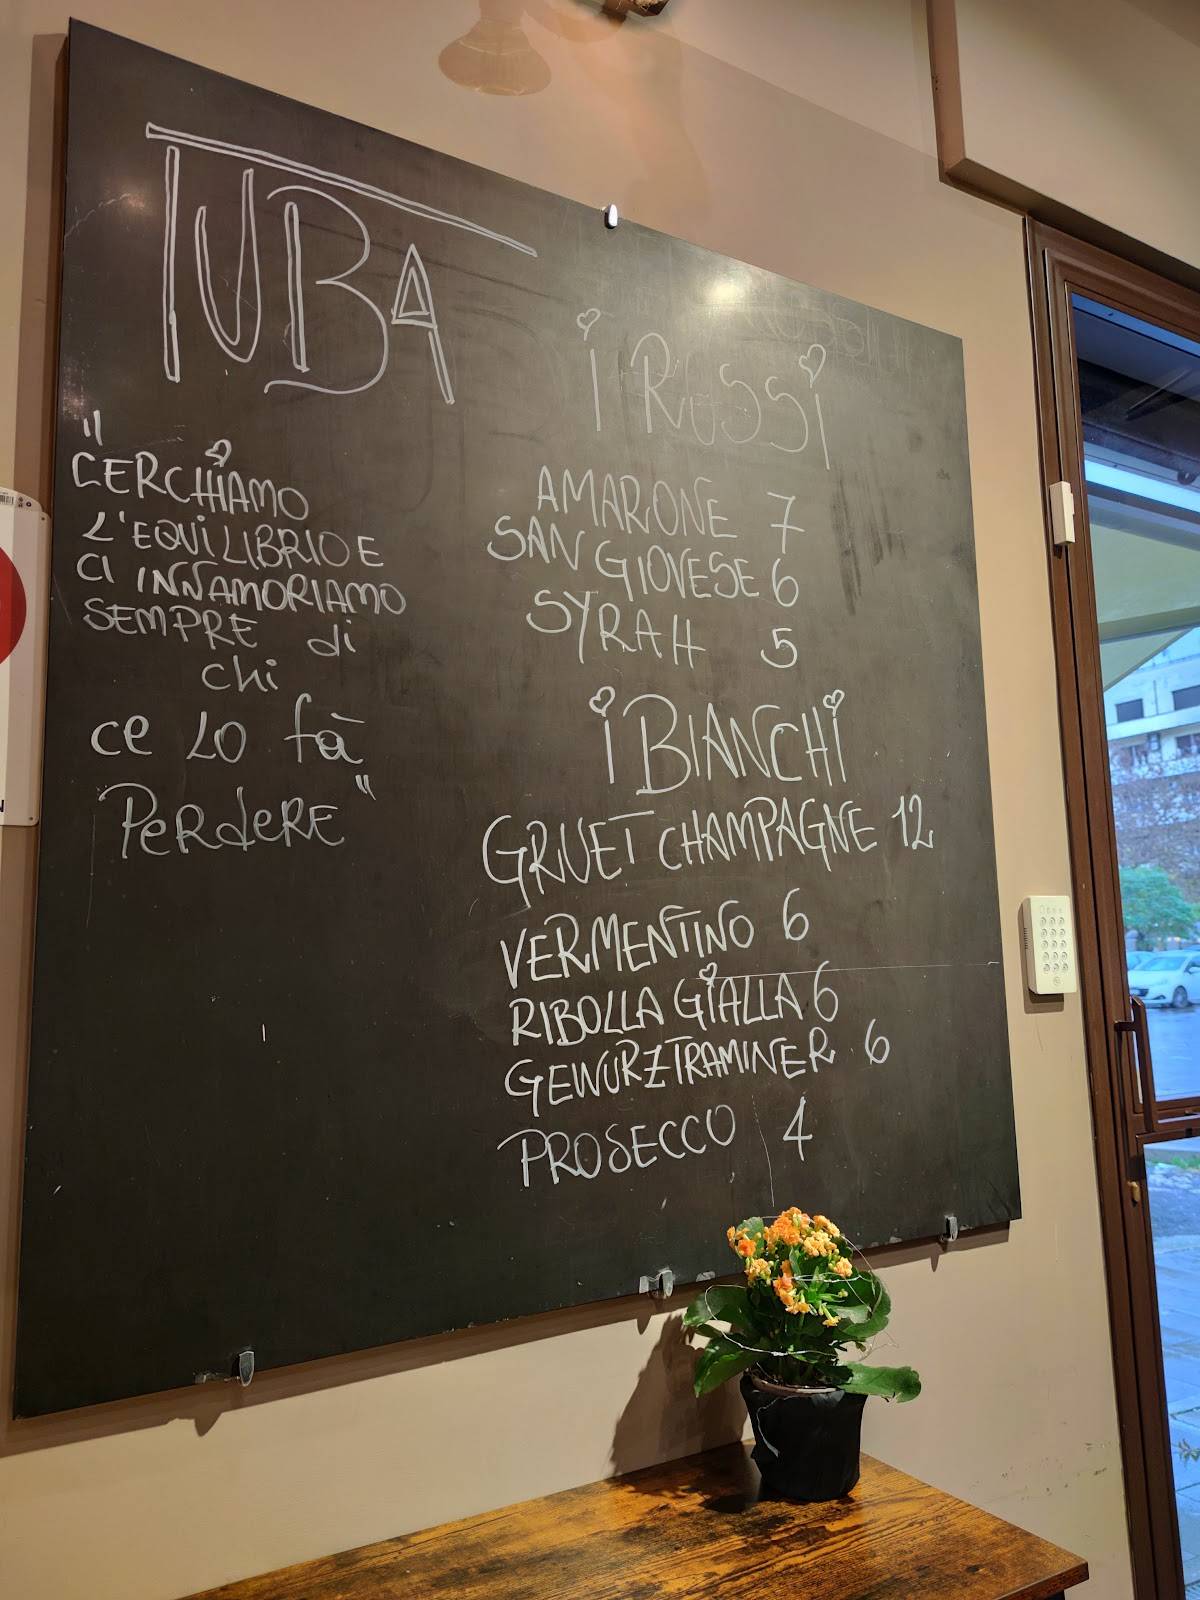 TUBA
"CERCHiAMO
L'EQUiLIBRIO E
CI INNAMORIAMO
SEMPRE di
chi
ce LO fà
PeRdeRE"
i ROSSi
AMARONE 7
SAN GIOVESE 6
SYRAH 5
i BIANCHi
GRUET CHAMPAGNE 12
VERMENTINO 6
RIBOLLA GiALLA 6
GEWURZTRAMINER 6
PROSECCO 4